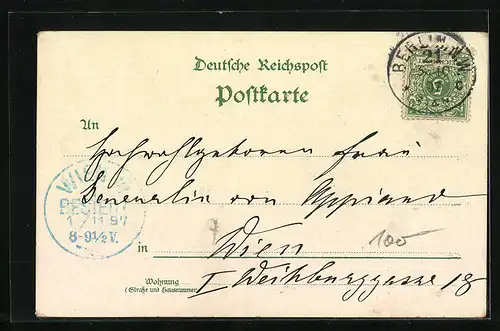 Deutsche Reichspost
Postkarte
BERLIN N.W.
21
An
Hochwohlgeboren Frau
Generalin von Appiano
WIEN
BESTELLT
11 97
8-9½V.
in Wien
100
Wohnung
(Straße und Hausnummer)
I Weihburggasse 18